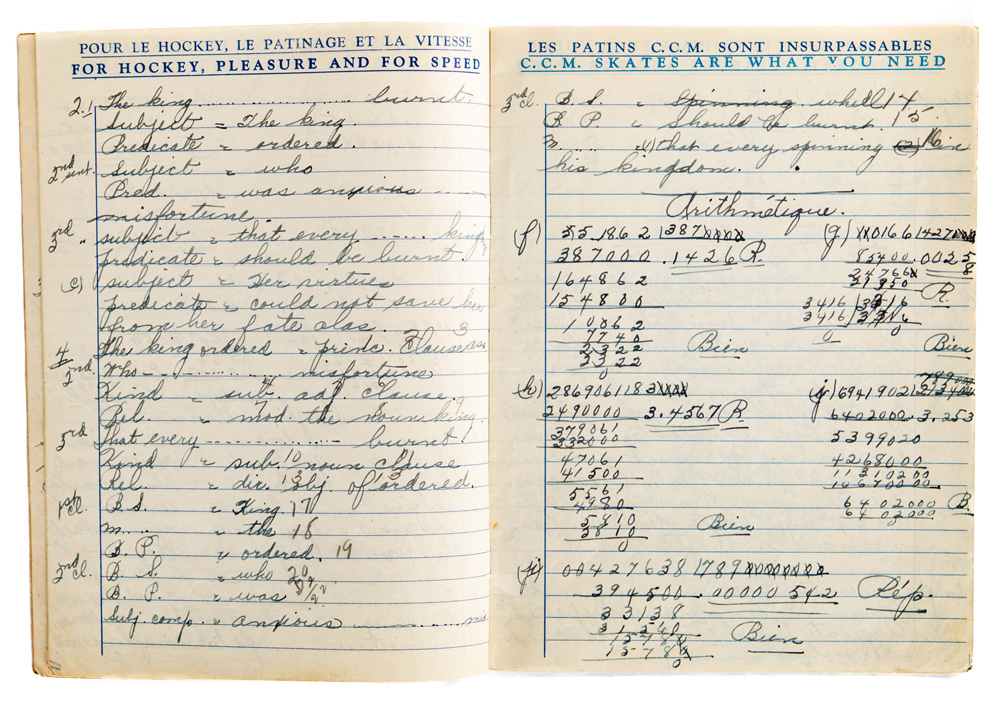 POUR LE HOCKEY, LE PATINAGE ET LA VITESSE
FOR HOCKEY, PLEASURE AND FOR SPEED
2.1 The king .................... burnt.
Subject = The king.
Predicate = ordered.
2nd sent. Subject = who
Pred. = was anxious
misfortune.
3rd " subject = that every ....... king
predicate = should be burnt.
(c) subject = Her virtues
predicate = could not save her
from her fate alas. 3
4 The king ordered = princ. Clause
2nd. Who ................ misfortune
Kind = sub. adj. clause.
Rel. = mod. the noun king
3rd That every ............ burnt!
Kind = sub. 10 noun clause
Rel. = dir. obj. of ordered.
1st Cl. B. S. = King. 17
m..... = the 18
B. P. = ordered. 19
2nd Cl. B. S. = who 20
B. P. = was
Subj. comp. = anxious
LES PATINS C.C.M. SONT INSURPASSABLES
C.C.M. SKATES ARE WHAT YOU NEED
3rd Cl. B. S. = Spinning wheel 14
B. P. = Should be burnt. 15
m..... = that every spinning 16 in
his kingdom.
Arithmétique.
(f) 55.1862 | 387
387000 .1426 R.
164862
154800
10062
7740
2322
2322
0
Bien
(g)
85400 .0025
8
R.
3416
3416
0
0
Bien
(h) 2869061183
2490000 3.4567 R
379061
332000
47061
41500
5561
4980
5810
5810
0
Bien
(j)
6402000 3.253
5399020
4268000
1131020
6402000
6402000
R.
004276381789
394500 .0000542 Rép.
33138
31560
15780
15780
0
Bien